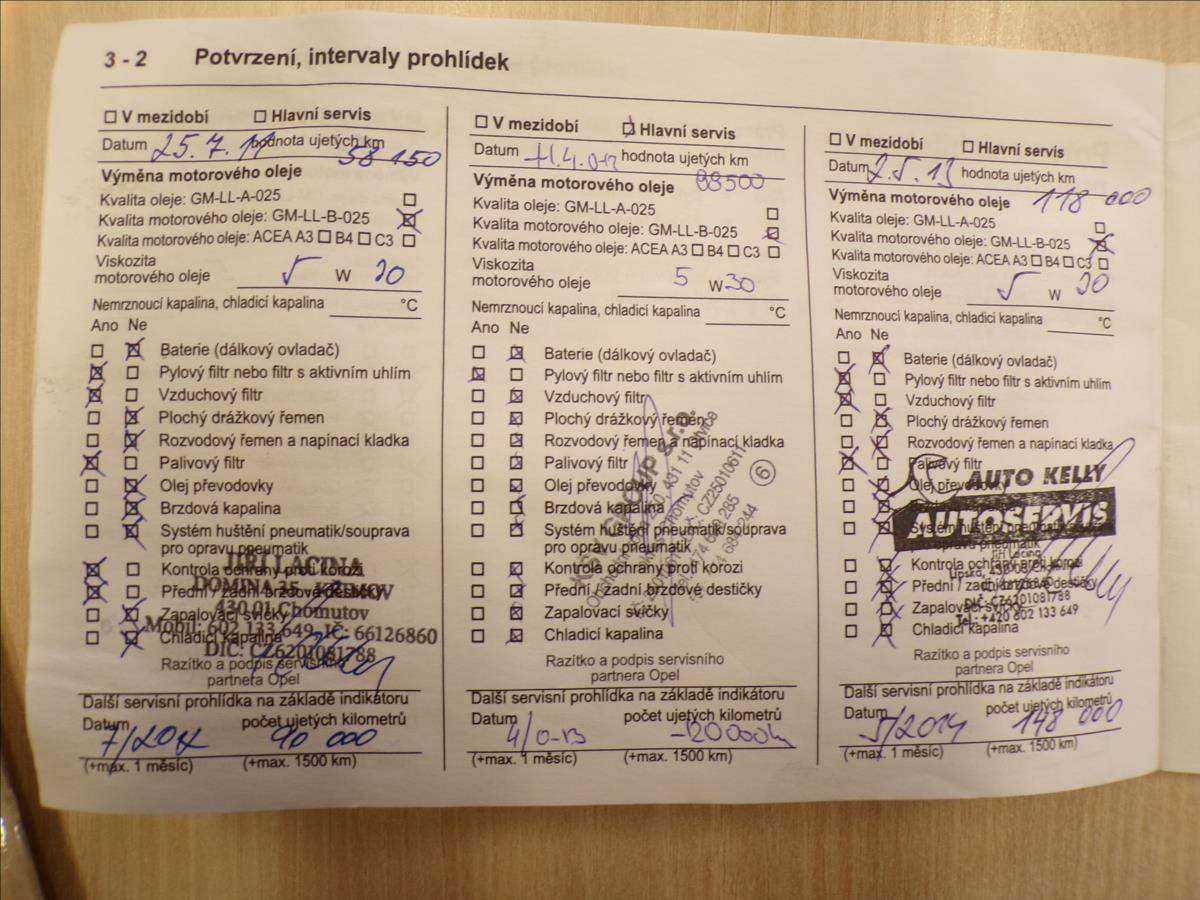 3 - 2 Potvrzení, intervaly prohlídek
V mezidobí Hlavní servis
Datum 25.7.11 hodnota ujetých km
58 150
Výměna motorového oleje
Kvalita oleje: GM-LL-A-025
Kvalita motorového oleje: GM-LL-B-025
Kvalita motorového oleje: ACEA A3 B4 C3
Viskozita
motorového oleje 5 W 30
Nemrznoucí kapalina, chladicí kapalina °C
Ano Ne
Baterie (dálkový ovladač)
Pylový filtr nebo filtr s aktivním uhlím
Vzduchový filtr
Plochý drážkový řemen
Rozvodový řemen a napínací kladka
Palivový filtr
Olej převodovky
Brzdová kapalina
Systém huštění pneumatik/souprava
pro opravu pneumatik
Kontrola ochrany proti korozi
Přední / zadní brzdové destičky
Zapalovací svíčky
Chladicí kapalina
JIŘÍ LACINA
DOMINA 35
430 01 Chomutov
Mobil: 602 133 649, IČ: 66126860
DIČ: CZ6201081788
Razítko a podpis servisního
partnera Opel
Další servisní prohlídka na základě indikátoru
Datum počet ujetých kilometrů
90 000
(+max. 1 měsíc) (+max. 1500 km)
V mezidobí Hlavní servis
Datum hodnota ujetých km
Výměna motorového oleje 88500
Kvalita oleje: GM-LL-A-025
Kvalita motorového oleje: GM-LL-B-025
Kvalita motorového oleje: ACEA A3 B4 C3
Viskozita
motorového oleje 5 W 30
Nemrznoucí kapalina, chladicí kapalina °C
Ano Ne
Baterie (dálkový ovladač)
Pylový filtr nebo filtr s aktivním uhlím
Vzduchový filtr
Plochý drážkový řemen
Rozvodový řemen a napínací kladka
Palivový filtr
Olej převodovky
Brzdová kapalina
Systém huštění pneumatik/souprava
pro opravu pneumatik
Kontrola ochrany proti korozi
Přední / zadní brzdové destičky
Zapalovací svíčky
Chladicí kapalina
6
Razítko a podpis servisního
partnera Opel
Další servisní prohlídka na základě indikátoru
Datum počet ujetých kilometrů
(+max. 1 měsíc) (+max. 1500 km)
V mezidobí Hlavní servis
Datum 2.5.13 hodnota ujetých km
Výměna motorového oleje 118 000
Kvalita oleje: GM-LL-A-025
Kvalita motorového oleje: GM-LL-B-025
Kvalita motorového oleje: ACEA A3 B4 C3
Viskozita
motorového oleje 5 W 30
Nemrznoucí kapalina, chladicí kapalina °C
Ano Ne
Baterie (dálkový ovladač)
Pylový filtr nebo filtr s aktivním uhlím
Vzduchový filtr
Plochý drážkový řemen
Rozvodový řemen a napínací kladka
Palivový filtr
Olej převodovky
Brzdová kapalina
Systém huštění pneumatik/souprava
pro opravu pneumatik
Kontrola ochrany proti korozi
Přední / zadní brzdové destičky
Zapalovací svíčky
Chladicí kapalina
AUTO KELLY
AUTOSERVIS
Jiří Lacina
DIČ: CZ6201081788
Tel.: +420 602 133 649
Razítko a podpis servisního
partnera Opel
Další servisní prohlídka na základě indikátoru
Datum počet ujetých kilometrů
5/2014 148 000
(+max. 1 měsíc) (+max. 1500 km)